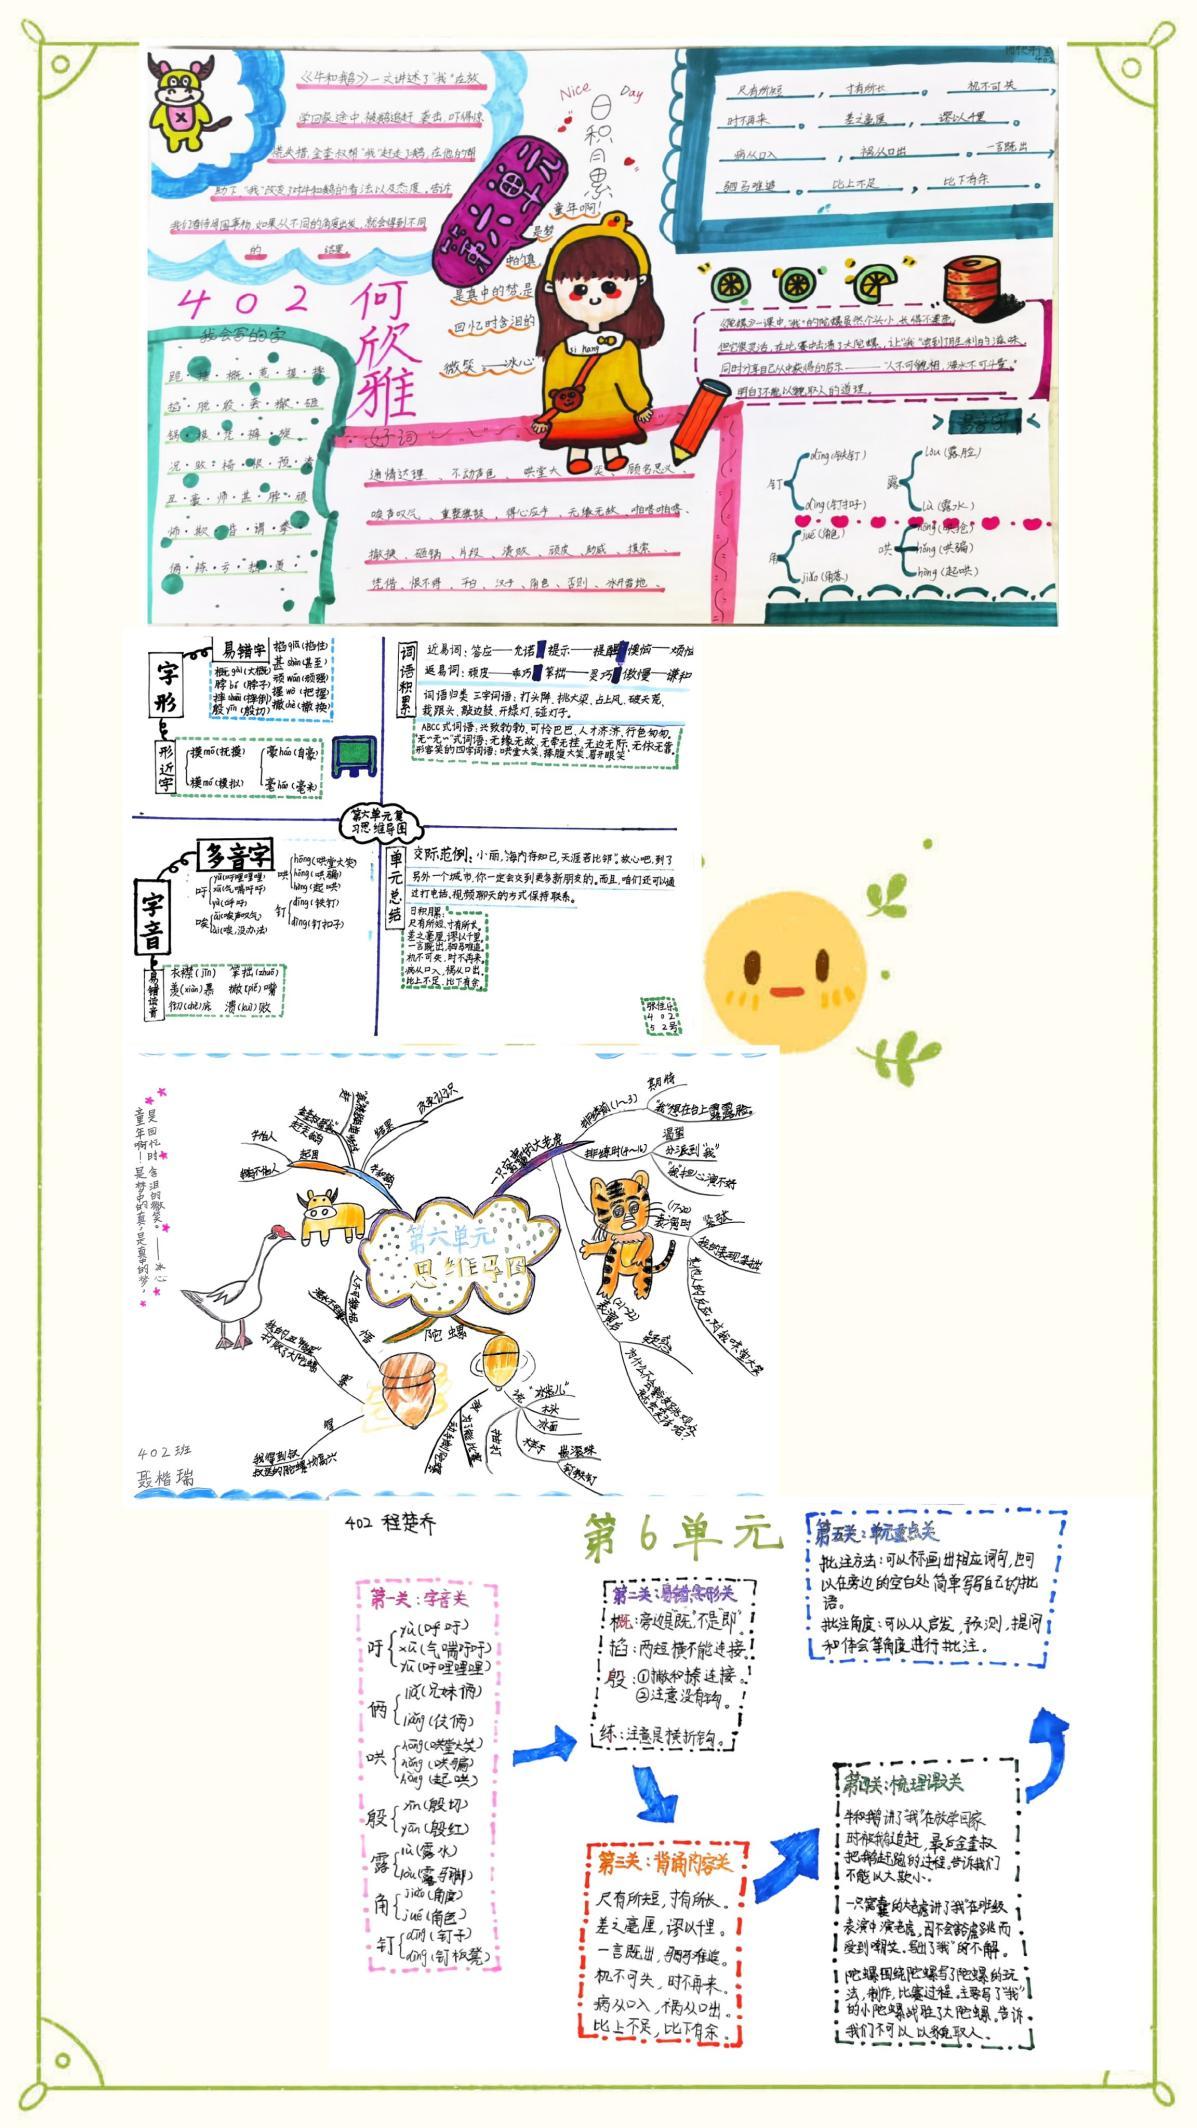 《牛和鹅》一文讲述了"我"在放
学回家途中,被鹅追赶、袭击,吓得惊
慌失措,金奎叔帮"我"赶走了鹅,在他的帮
助了"我"改变了对牛和鹅的看法以及态度。告诉
我们看待周围事物,如果从不同的角度出发,就会得到不同
的 结果
Nice Day
日积月累
第六单元
童年啊!
是梦
中的真,
是真中的梦,是
回忆时含泪的
微笑。——冰心
尺有所短,寸有所长。机不可失,
时不再来。差之毫厘,谬以千里。
病从口入,祸从口出。一言既出,
驷马难追。比上不足,比下有余。
402 何欣雅
我会写的字
好词
通情达理、不动声色、哄堂大笑、顾名思义、
唉声叹气、重整旗鼓、得心应手、无缘无故、啪嗒啪嗒、
撤换、砸锅、片段、溃败、顽皮、助威、摸索、
凭借、恨不得、平白、汉子、角色、否则、冰天雪地、
si hang
《陀螺》一课中,"我"的陀螺虽然个头小,长得不漂亮,
但它很灵活,在比赛中击溃了大陀螺,让"我"尝到了胜利的滋味,
同时分享自己从中获得的启示——"人不可貌相,海水不可斗量。"
明白了不能以貌取人的道理。
多音字
钉 dīng(铁钉)
dìng(钉扣子)
露 lòu(露脸)
lù(露水)
角 jué(角色)
jiǎo(角落)
哄 hōng(哄抢)
hǒng(哄骗)
hòng(起哄)
字形
易错字
概gài(大概)
脖bó(脖子)
摔shuāi(摔倒)
殷yīn(殷切)
掐qiā(掐住)
甚shèn(甚至)
顽wán(顽强)
握wò(把握)
撤chè(撤换)
形近字
摸mō(抚摸)
模mó(模拟)
豪háo(自豪)
毫háo(毫米)
词语积累
近易词:答应——允诺 提示——提醒 懊恼——烦恼
返易词:顽皮——乖巧 笨拙——灵巧 傲慢——谦和
词语归类 三字词语:打头阵、挑大梁、占上风、破天荒、
栽跟头、敲边鼓、开绿灯、碰灯子。
ABCC式词语:兴致勃勃、可怜巴巴、人才济济、行色匆匆。
无~无~"式词语:无缘无故、无牵无挂、无边无际、无依无靠。
形容笑的四字词语:哄堂大笑、捧腹大笑、眉开眼笑
第六单元复
习思维导图
字音
多音字
吁 yū(吁哩哩哩)
xū(气喘吁吁)
yù(呼吁)
唉 āi(唉声叹气)
ài(唉,没办法)
哄 hōng(哄堂大笑)
hǒng(哄骗)
hòng(起哄)
钉 dīng(铁钉)
dìng(钉扣子)
易错读音
衣襟(jīn) 笨拙(zhuō)
羡(xiàn)慕 撇(piě)嘴
彻(chè)底 溃(kuì)败
单元总结
交际范例:小丽,"海内存知己,天涯若比邻"。放心吧,到了
另外一个城市,你一定会交到更多新朋友的。而且,咱们还可以通
过打电话、视频聊天的方式保持联系。
日积月累:
尺有所短,寸有所长。
差之毫厘,谬以千里。
一言既出,驷马难追。
机不可失,时不再来。
病从口入,祸从口出。
比上不足,比下有余。
张佳乐
402
52号
童年啊!是梦中的真,是真中的梦,
是回忆时含泪的微笑。——冰心
第六单元
思维导图
牛和鹅
起因
结果
改变认识
一只窝囊的大老虎
排练前(1~3)
期待
"我"想在台上露露脸。
排练时(4~16)
渴望
分派到"我"
"我"担心演不好
(17~20)
表演时
紧张
我的表现笨拙
其他人的反应,对我哄堂大笑
表演后
(21~22)
疑惑
陀螺
悟
"冰尜儿"
木头
冰面
抽打
402班
聂楷瑞
402 程楚乔
第6单元
第一关:字音关
吁 yù(呼吁)
xū(气喘吁吁)
yū(吁哩哩哩)
俩 liǎ(兄妹俩)
liǎng(伎俩)
哄 hōng(哄堂大笑)
hǒng(哄骗)
hòng(起哄)
殷 yīn(殷切)
yān(殷红)
露 lù(露水)
lòu(露马脚)
角 jiǎo(角度)
jué(角色)
钉 dīng(钉子)
dìng(钉板凳)
第二关:易错字形关
概:旁边是"既"不是"即"。
掐:两短横不能连接。
殷:①撇和捺连接。
②注意没有钩。
练:注意是横折钩。
第三关:背诵内容关
尺有所短,寸有所长。
差之毫厘,谬以千里。
一言既出,驷马难追。
机不可失,时不再来。
病从口入,祸从口出。
比上不足,比下有余。
第四关:梳理课文关
牛和鹅讲了"我"在放学回家
时被鹅追赶,最后金奎叔
把鹅赶跑的过程。告诉我们
不能以大欺小。
一只窝囊的大老虎讲了"我"在班级
表演中演老虎,因不会豁虎跳而
受到嘲笑。写出了"我"的不解。
陀螺围绕陀螺写了陀螺的玩
法,制作,比赛过程。主要写了"我"
的小陀螺战胜了大陀螺。告诉
我们不可以以貌取人。
第五关:单元重点关
批注方法:可以标画出相应词句,也可
以在旁边的空白处简单写写自己的批
语。
批注角度:可以从启发,预测,提问
和体会等角度进行批注。